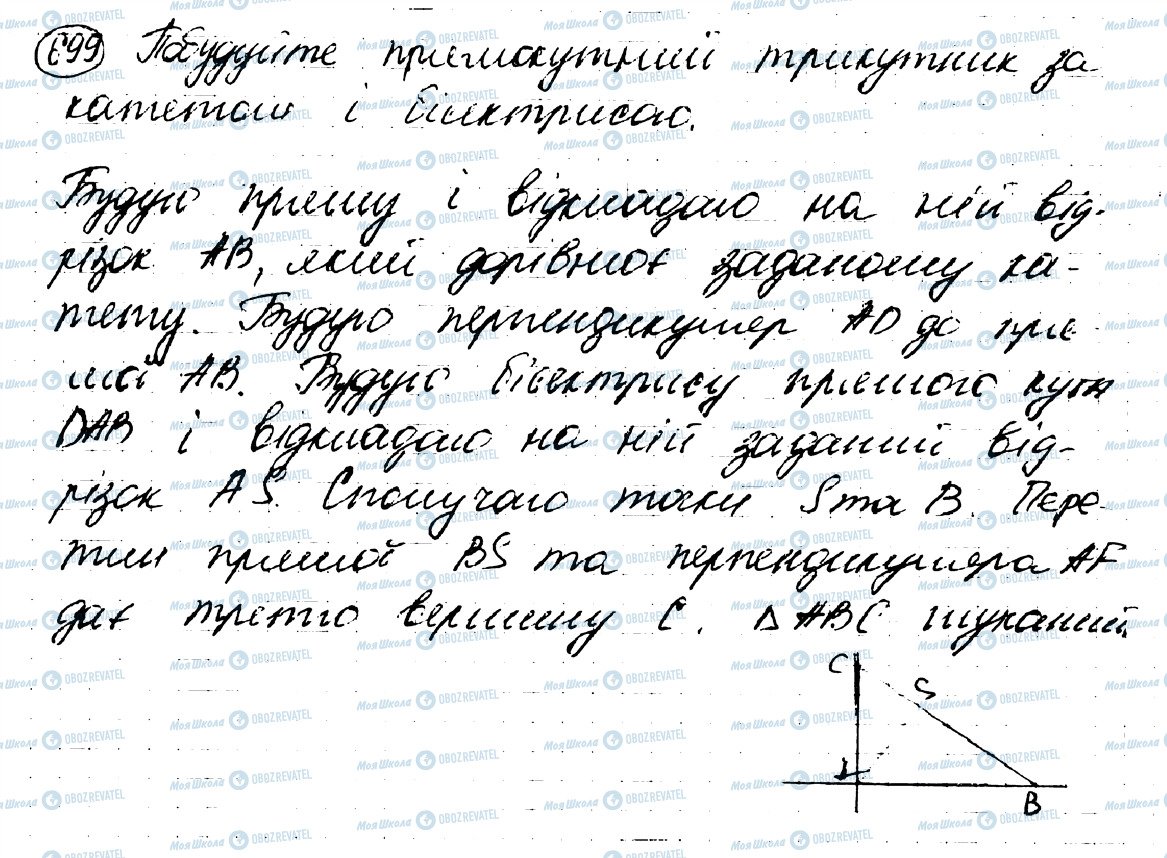 699 Побудуйте прямокутний трикутник за
катетом і бісектрисою.
Будую пряму і відкладаю на ній від-
різок AB, який дорівнює заданому ка-
тету. Будую перпендикуляр AD до пря
мої AB. Будую бісектрису прямого кута
DAB і відкладаю на ній заданий від-
різок AS. Сполучаю точки S та B. Пере-
тин прямої BS та перпендикуляра AF
дає третю вершину C. Δ ABC шуканий
C
S
B
МояШкола OBOZREVATEL